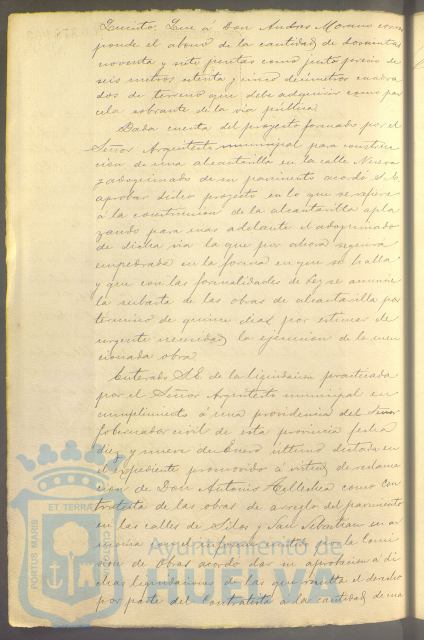 Quinto. Que á Don Andres Moreno corres
ponde el abono de la cantidad de doscientas
noventa y siete pesetas como justo precio de
seis metros setenta y cinco decimetros cuadra
dos de terreno que debe adquirir como par
cela sobrante de la via pública.
Dada cuenta del proyecto formado por el
Señor Arquitecto municipal para construc
cion de una alcantarilla en la calle Nueva
y adoquinado de su pavimento acordó S.E.
aprobar dicho proyecto en lo que se refiere
á la construccion de la alcantarilla apla
zando para mas adelante el adoquinado
de dicha via la que por ahora seguirá
empedrada en la forma en que se halla
y que con las formalidades de Ley se anuncie
la subasta de las obras de alcantarilla por
termino de quince dias por estimar de
urgente necesidad la ejecucion de la men
cionada obra.
Enterado S.E. de la liquidacion practicada
por el Señor Arquitecto municipal en
cumplimiento á una providencia del Señor
Gobernador civil de esta provincia fecha
diez y nueve de Enero último dictada en
el expediente promovido á virtud de reclama
cion de Don Antonio como con
tratista de las obras de arreglo del pavimento
en las calles de Silos y San Sebastian en ar
monia con el informe emitido por la Comi
sion de Obras acordó dar su aprobacion á di
chas liquidaciones de las que resulta el derecho
por parte del contratista á la cantidad de una
PORTUS MARIS ET TERRAE CUSTODIA
Ayuntamiento de
HUELVA